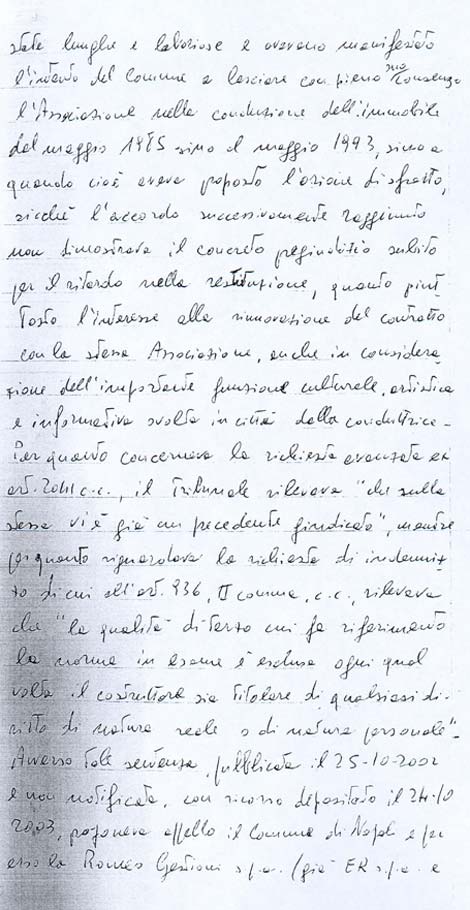 state lunghe e laboriose e avevano manifestato
l'intento del Comune a lasciare con pieno suo consenso
l'Associazione nella conduzione dell'immobile
dal maggio 1985 sino al maggio 1993, sino a
quando cioè aveva proposto l'azione di sfratto,
sicché l'accordo successivamente raggiunto
non dimostrava il concreto pregiudizio subito
per il ritardo nella restituzione, quanto piut
tosto l'interesse alla rinnovazione del contratto
con la stessa Associazione, anche in considera
zione dell'importante funzione culturale, artistica
e informativa svolta in città dalla conduttrice -
Per quanto concerneva la richiesta avanzata ex
art. 2041 c.c., il Tribunale rilevava "che sulla
stessa vi è già un precedente giudicato", mentre
per quanto riguardava la richiesta di indenniz
zo di cui all'art. 936, II comma, c.c., rilevava
che "la qualità di terzo cui fa riferimento
la norma in esame è esclusa ogni qual
volta il costruttore sia titolare di qualsiasi di
ritto di natura reale o di natura personale" -
Avverso tale sentenza, pubblicata il 25-10-2002
e non notificata, con ricorso depositato il 24-10
2003, proponeva appello il Comune di Napoli e per
esso la Romeo Gestioni s.p.a. (già ER s.p.a. e